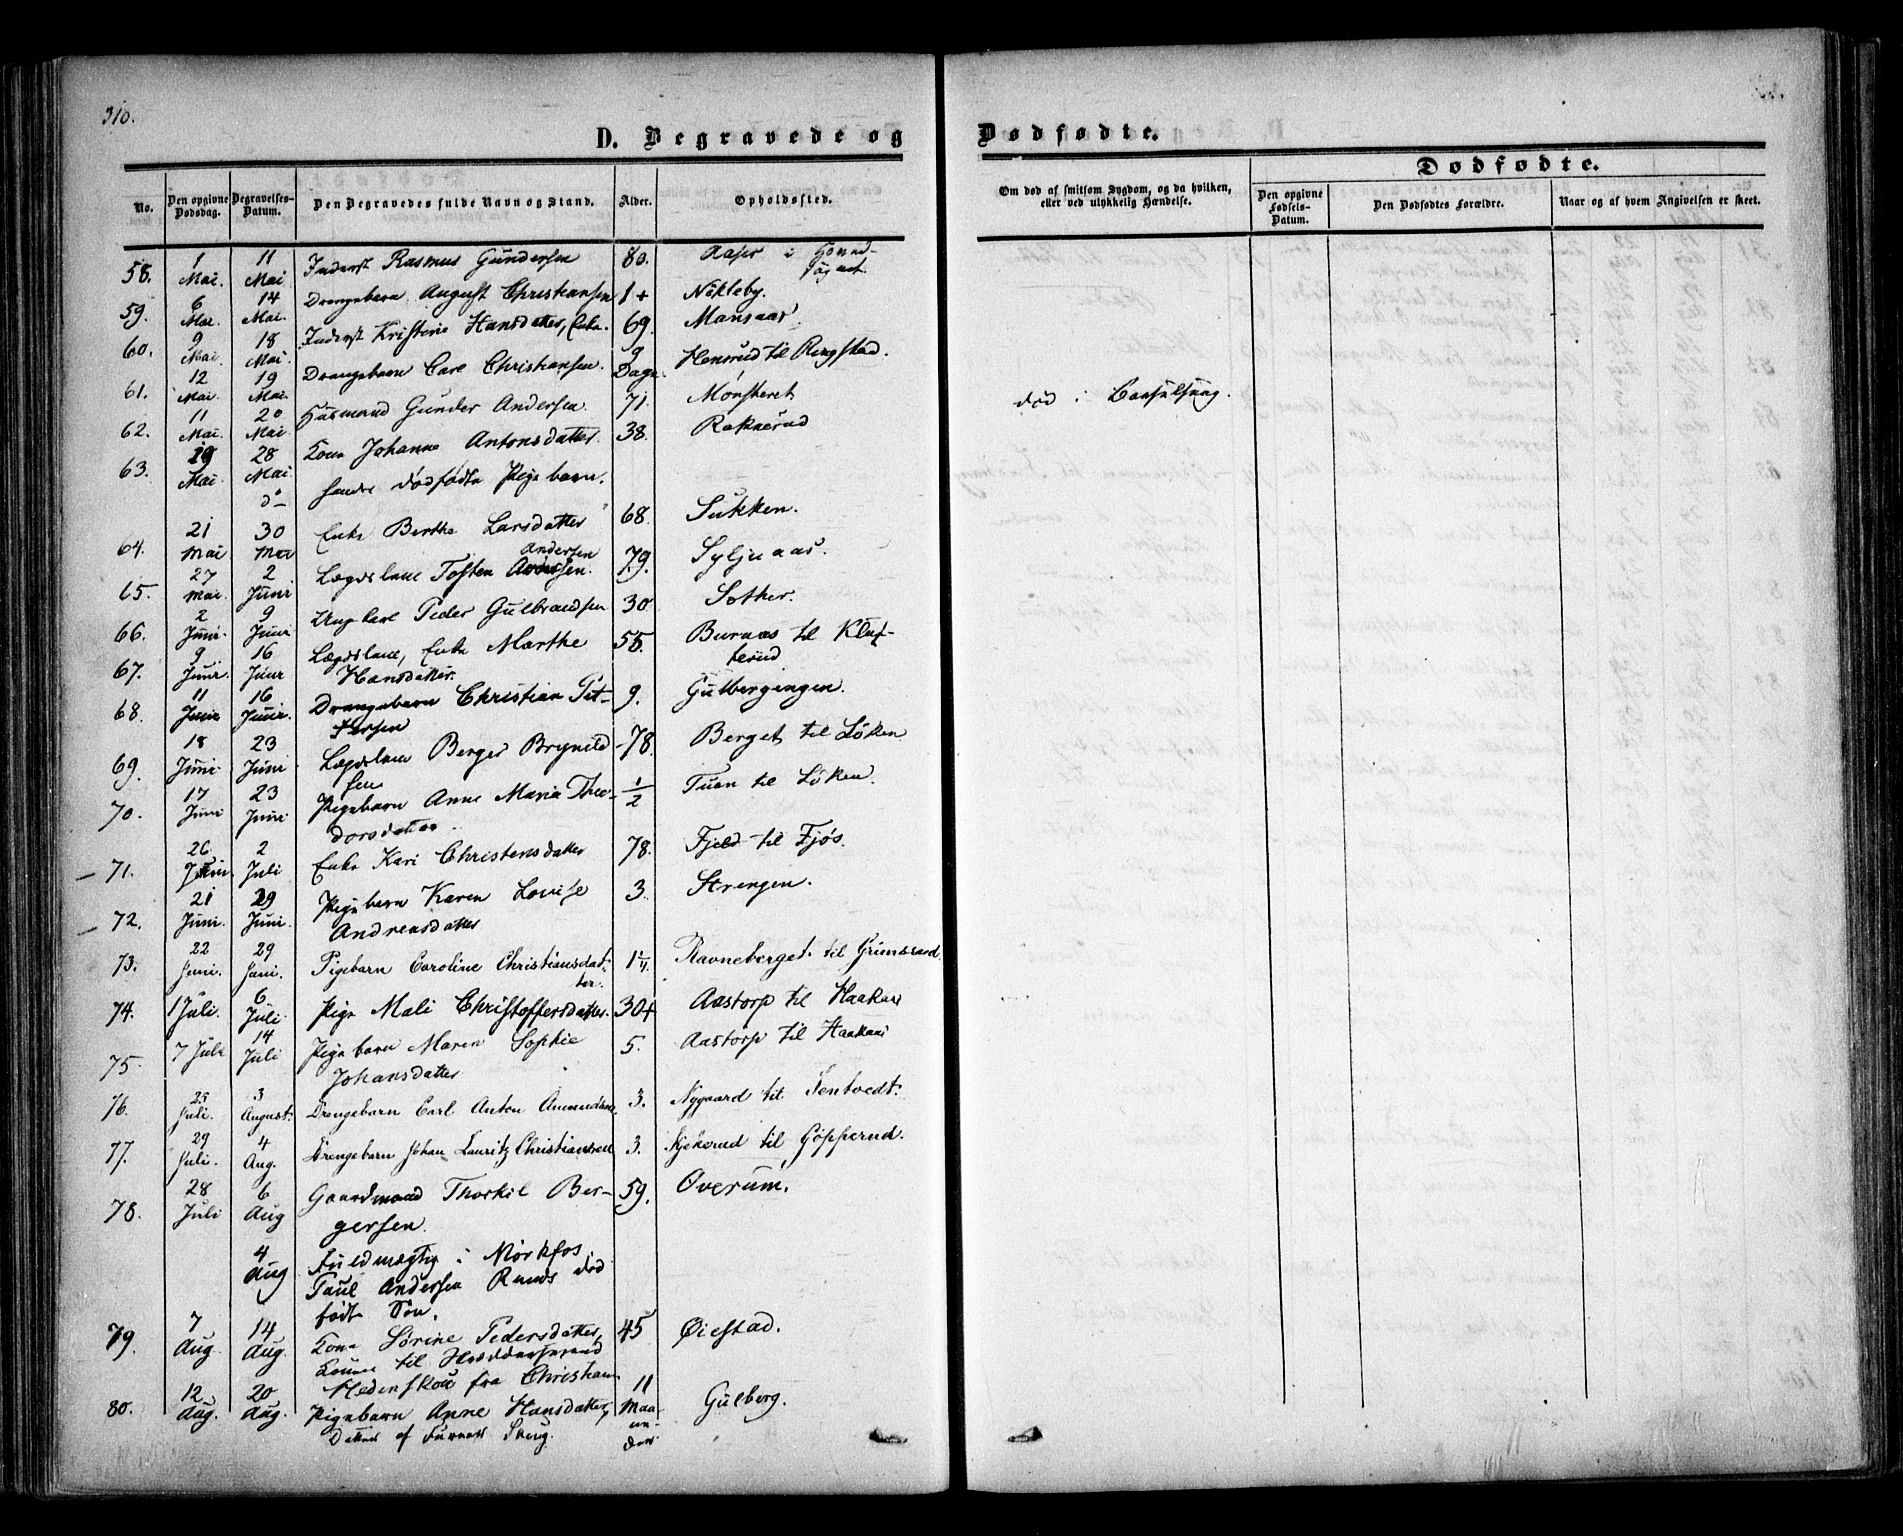 310.
D. Begravede og Dødfødte.
Dødfødte.
No. Den opgivne Dødsdag. Begravelses-Datum. Den Begravedes fulde Navn og Stand. Alder. Opholdssted. Om død af smitsom Sygdom, og da hvilken, eller ved ulykkelig Hændelse. Den opgivne Fødsels-Datum. Den Dødfødtes Forældre. Naar og af hvem Angivelsen er skeet.
58. 1 Mai. 11 Mai Inderst Rasmus Gundersen 80. Aaser i
59. 6 Mai. 14 Mai. Drengebarn August Christiansen 1+ Nökleby.
60. 9 Mai 18 Mai. Inderst Kristine Hansdatter, Enke. 69. Mansaas.
61. 12 Mai. 19 Mai. Drengebarn Carl Christiansen. 9 Dage. Hensrud til Ringstad.
62. 11 Mai. 20 Mai Husmand Gunder Andersen. 71. Mönsteret død i
63. 19 Mai 28 Mai Kone Johanne Antonsdatter. 38. Raknerud
do hendes dødfødte Pigebarn.
64. 21 Mai 30 Mai Enke Berthe Larsdatter 68. Sukken.
65. 27 Mai. 2 Juni Lægdslem Tosten Andersen 79. Syljuaas.
66. 2 Juni. 9 Juni Ungkarl Peder Gulbrandsen 30. Sother.
67. 9 Juni. 16 Juni Lægdslem, Enke Marthe 55. Buraas til Kluf-
Hansdatter. terud
68. 11 Juni 16 Juni. Drengebarn Christian Pet- 9. Gulbergengen.
tersen
69. 18 Juni 23 Juni Lægdslem Berger Brynild- 78. Berget til Löken
sen
70. 17 Juni 23 Juni Pigebarn Anne Maria Theo- 1/2 Tuen til Löken.
dorsdatter.
71. 26 Juni. 2 Juli Enke Kari Christensdatter 78. Fjeld til Fjøs.
72. 21 Juni. 29 Juni. Pigebarn Karen Lovise 3. Strengen.
Andreasdatter
73. 22 Juni. 29 Juni. Pigebarn Caroline Christiansdat- 1 1/4. Ravneberget til
ter.
74. 1 Juli. 6 Juli Pige Mali Christoffersdatter. 30+ Aastorp til Haakaas
75. 7 Juli 14 Juli Pigebarn Maren Sophie 5. Aastorp til Haakaas
Johansdatter
76. 25 Juli. 3 August. Drengebarn Carl Anton Amundsen. 3. Nygaard til Tentvedt.
77. 29 Juli. 4 Aug. Drengebarn Johan Lauritz Christiansen 3. til Göpperud.
78. 28 Juli 6 Aug Gaardmand Thorkil Ber- 59. Overum.
gersen.
4 Aug Fuldmægtig i Mörkfos
Paul Andersen Ruuds død
fødte Sön.
79. 7 Aug 14 Aug. Kone Sörine Pedersdatter, 45 Øiestad.
til
fra Christian
80. 12 Aug. 20 Aug. Pigebarn Anne Hansdatter, 11 Maaneder Gulberg.
Datter af